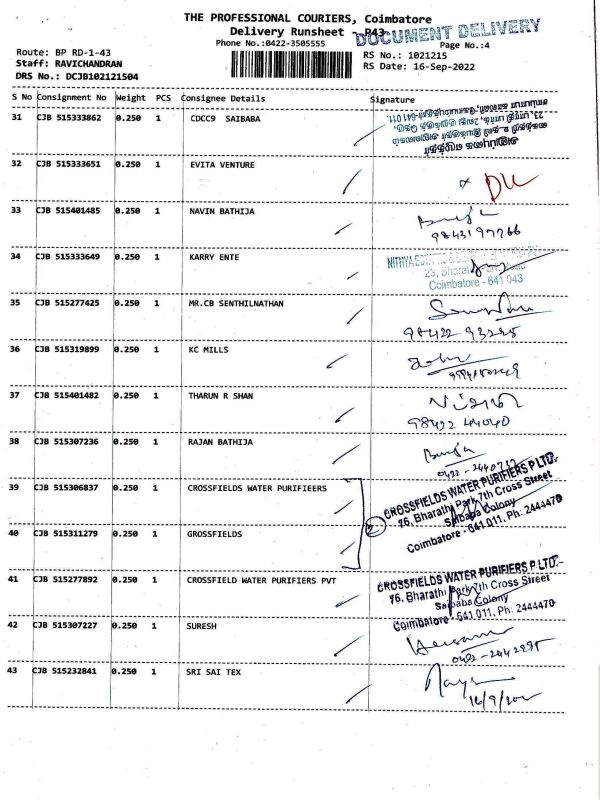 THE PROFESSIONAL COURIERS, Coimbatore
Delivery Runsheet - P43
DOCUMENT DELIVERY
Phone No.:0422-3505555
Page No.:4
Route: BP RD-1-43
RS No.: 1021215
Staff: RAVICHANDRAN
RS Date: 16-Sep-2022
DRS No.: DCJB102121504
S No Consignment No Weight PCS Consignee Details Signature
31 CJB 515333862 0.250 1 CDCC9 SAIBABA
32 CJB 515333651 0.250 1 EVITA VENTURE
DU
33 CJB 515401485 0.250 1 NAVIN BATHIJA
9843197766
34 CJB 515333649 0.250 1 KARRY ENTE
NITHYA
23, Bharati
Coimbatore - 641 043
35 CJB 515277425 0.250 1 MR.CB SENTHILNATHAN
98422 93225
36 CJB 515319899 0.250 1 KC MILLS
37 CJB 515401482 0.250 1 THARUN R SHAN
98422 44040
38 CJB 515307236 0.250 1 RAJAN BATHIJA
0422-2440712
39 CJB 515306837 0.250 1 CROSSFIELDS WATER PURIFIEERS
CROSSFIELDS WATER PURIFIERS P LTD.
76, Bharathi Park 7th Cross Street
Saibaba Colony
Coimbatore - 641 011, Ph: 2444470
2
40 CJB 515311279 0.250 1 GROSSFIELDS
41 CJB 515277892 0.250 1 CROSSFIELD WATER PURIFIERS PVT
CROSSFIELDS WATER PURIFIERS P LTD.
76, Bharathi Park 7th Cross Street
Saibaba Colony
Coimbatore - 641 011, Ph: 2444470
42 CJB 515307227 0.250 1 SURESH
0422-2442295
43 CJB 515232841 0.250 1 SRI SAI TEX